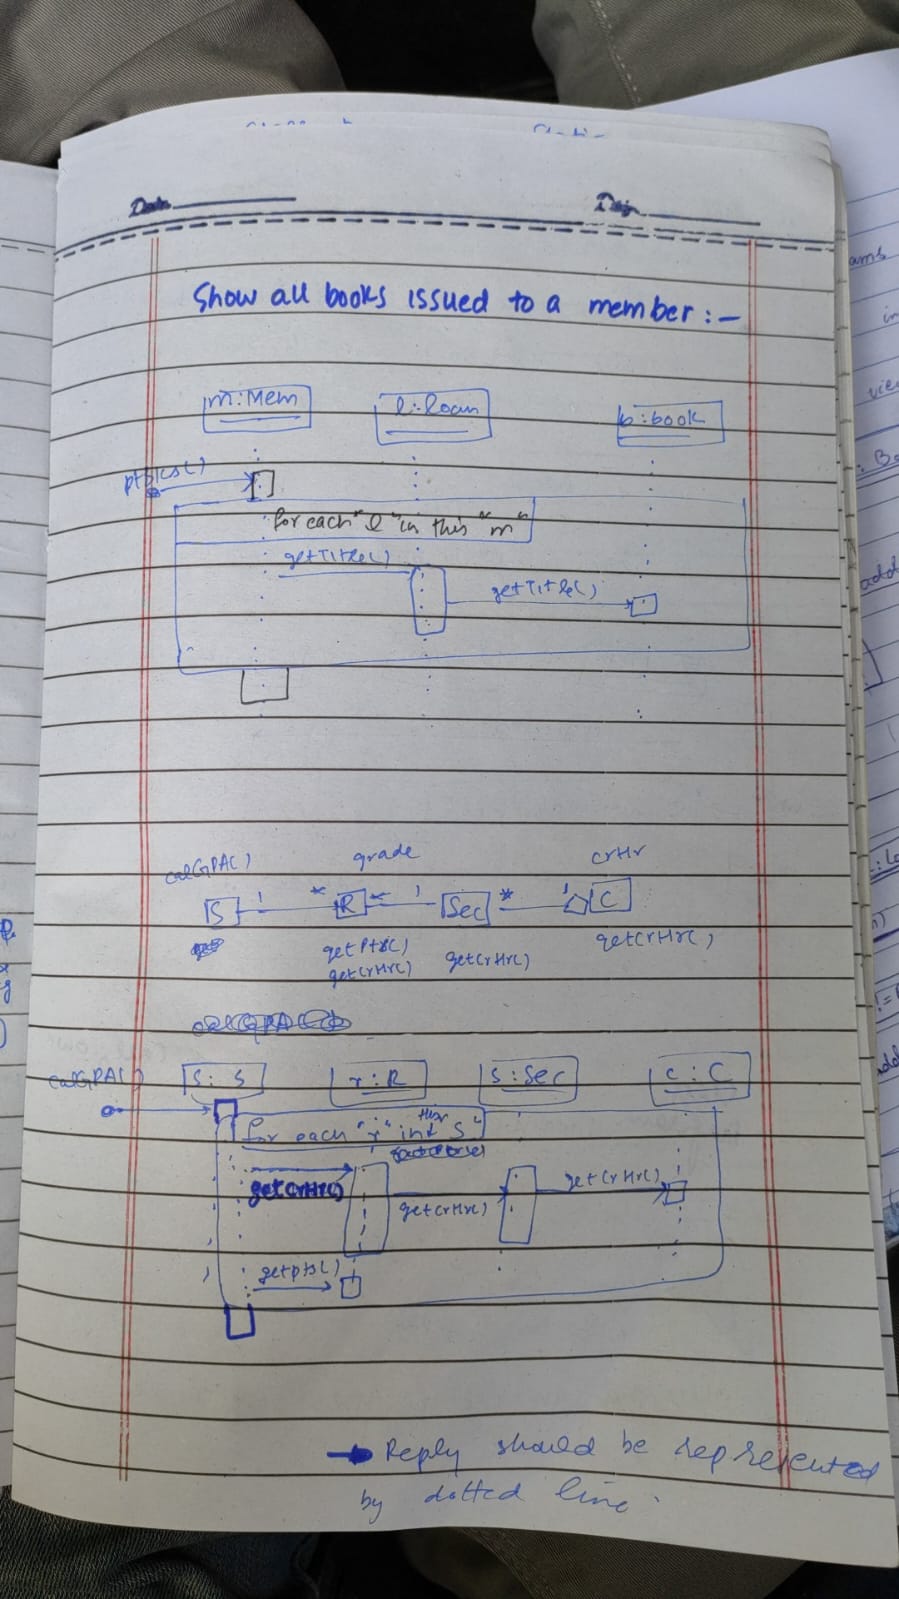 Date
Day
Show all books issued to a member :-
m:Mem l:loan b:book
for each "l" in this "m"
getTitle()
getTitle()
calGPA() grade crHr
S 1 * R * 1 Sec * 1 C
getPts() getCrHr()
getCrHr() getCrHr()
calGPA() s : S r : R s : Sec c : C
for each "r" in this "s"
getCrHr() getCrHr() getCrHr()
getpts()
→ Reply should be represented
by dotted line.